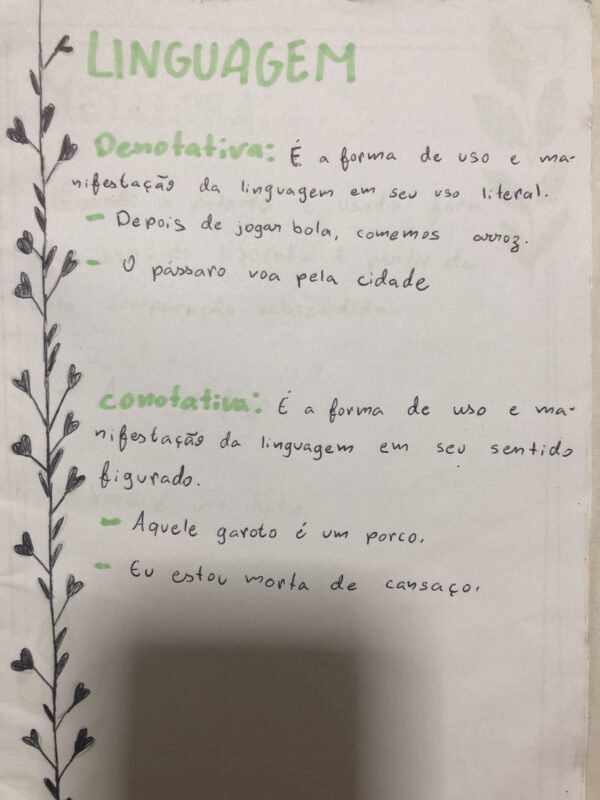 LINGUAGEM
Denotativa: É a forma de uso e ma-
nifestação da linguagem em seu uso literal.
- Depois de jogar bola, comemos arroz.
- O pássaro voa pela cidade
conotativa: É a forma de uso e ma-
nifestação da linguagem em seu sentido
figurado.
- Aquele garoto é um porco.
- Eu estou morta de cansaço.